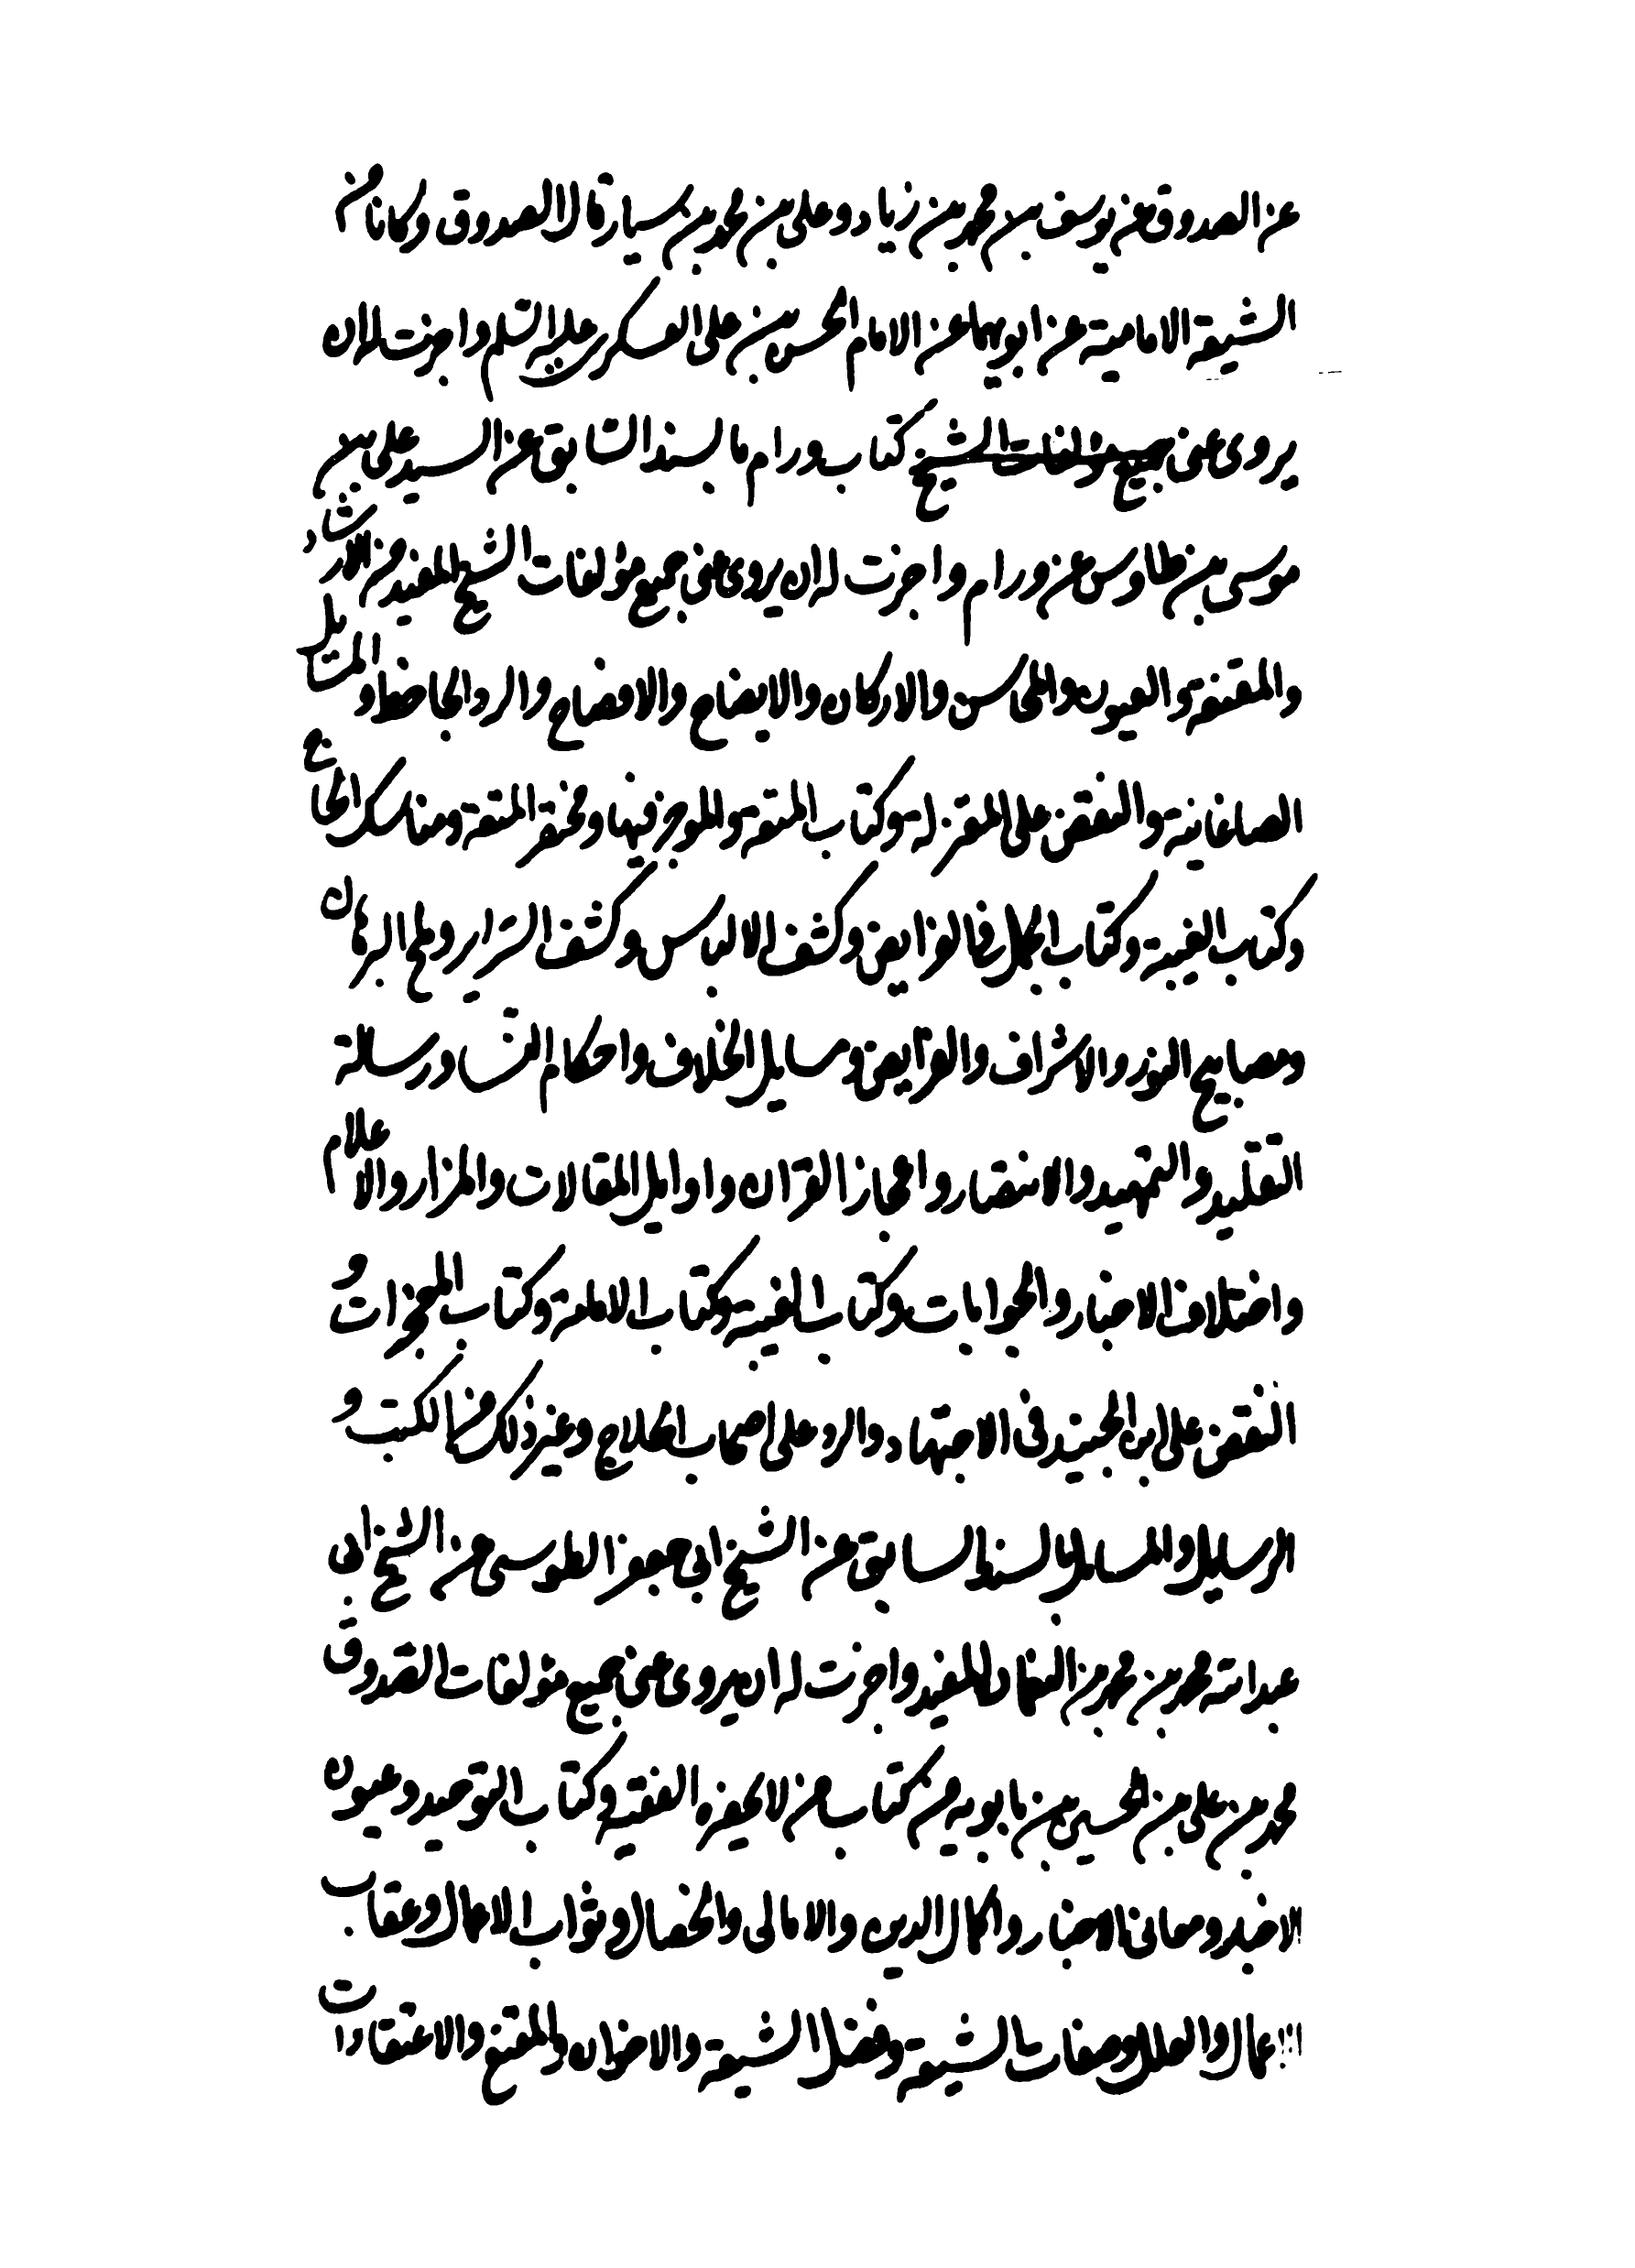 عن الصدوق عن يوسف بن محمد بن زياد وعلى بن محمد بن سيار قال الصدوق وكانا من
الشيعة الامامية عن ابويهما عن الامام الحسن بن على العسكرى عليه السلم واجزت له ان
يروى عنى جميع مولفات الشيخ كتاب ورام بالسند السابق عن السيد على بن
موسى بن طاوس عن ورام واجزت له ان يروى عنى جميع مؤلفات الشيخ المفيد من الارشاد
والمقنعة والعيون والمحاسن والاركان والايضاح والافصاح والرد الجاحظ والمسايل
الصاغانية والنقض على المعتزلة وكتاب المتعة والموجز فيها ومختصر المتعة ومناسك الحاج
وكتاب الغيبة وكتاب الجمل فى الفرايض وكشف الالباس وكشف السراير ولمح البرهان
ومصابيح النور والاشراف والفرايض ومسايل الخلاف واحكام النسا ورسالة
التقليد والتمهيد والانتصار واعجاز القران واوايل المقالات والمزار والاعلام
واختلاف الاخبار والجوابات وكتاب الغيبة وكتاب الامامة وكتاب المعجزات و
النقض على ابن الجنيد فى الاجتهاد والرد على اصحاب الحلاج وغير ذلك من الكتب و
الرسايل والمسايل بالسند السابق عن الشيخ ابى جعفر الطوسى عن الشيخ ابى
عبدالله محمد بن محمد بن النعمان المفيد واجزت له ان يروى عنى جميع مؤلفات الصدوق
محمد بن على بن الحسين بن بابويه من كتاب من لا يحضره الفقيه وكتاب التوحيد وعيون
الاخبار ومعانى الاخبار واكمال الدين والامالى والخصال وثواب الاعمال وعقاب
الاعمال والعلل وصفات الشيعة وفضل الشيعة والاخوان والمقنع والاعتقادات